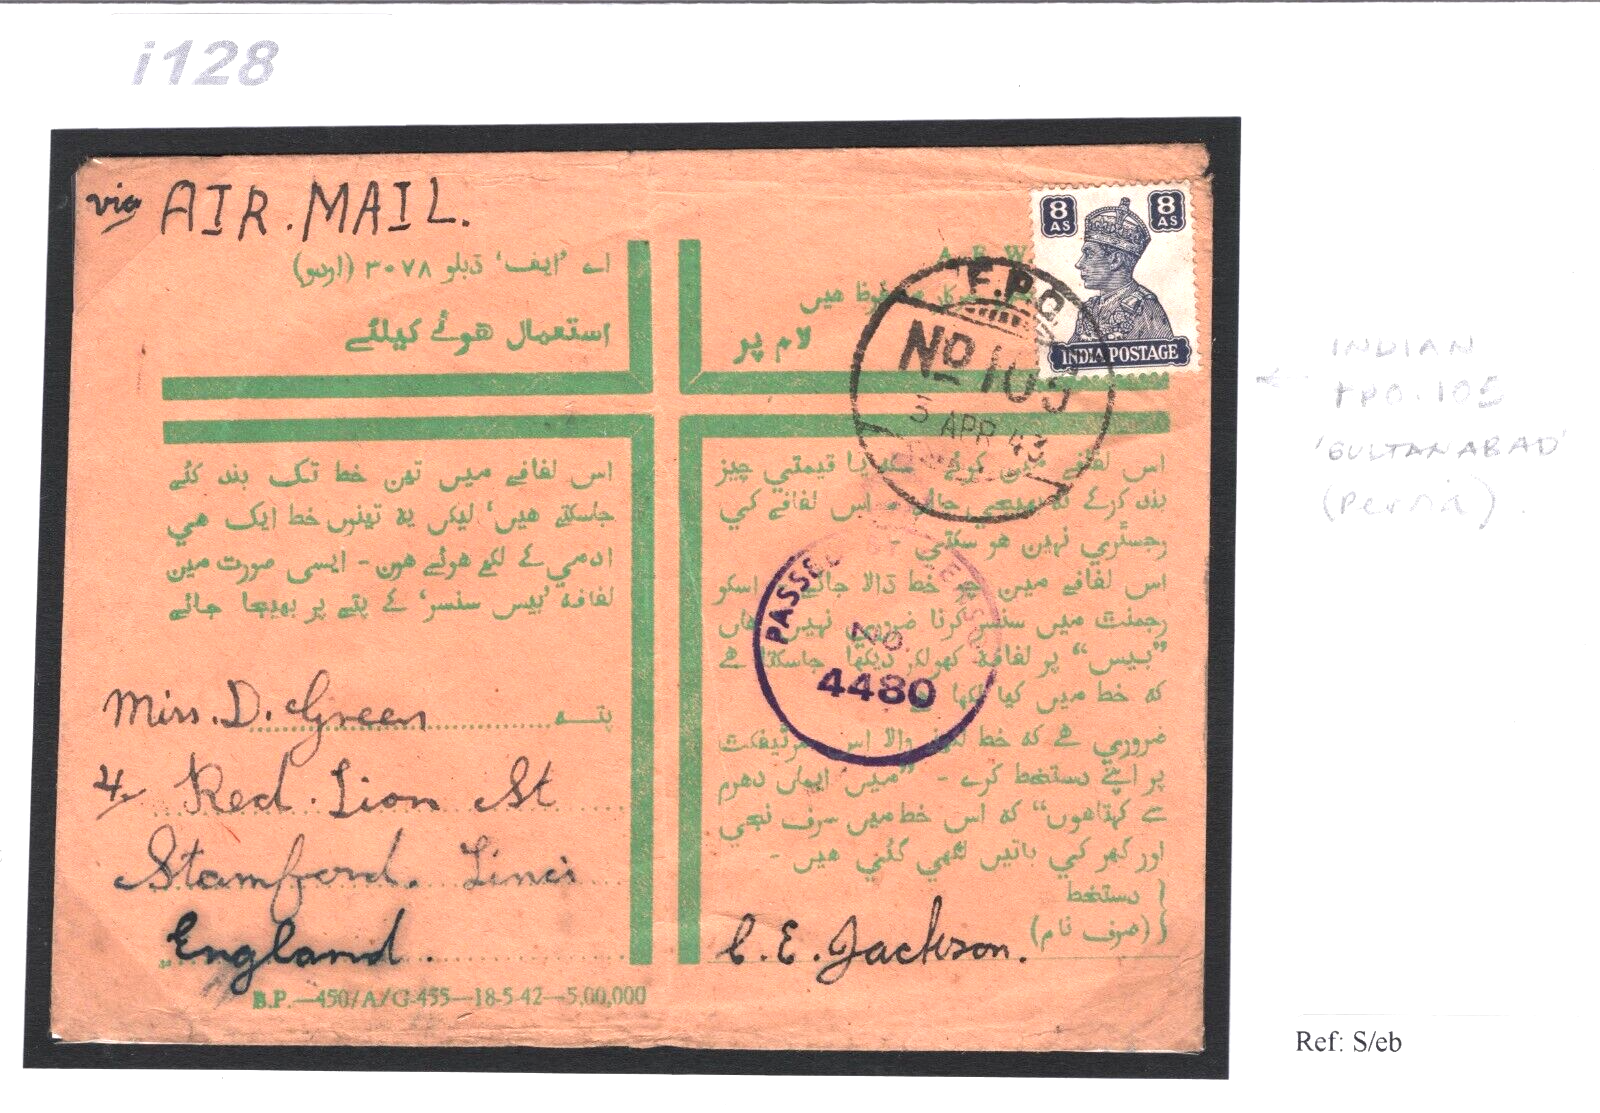 i128
via AIR. MAIL.
8 AS 8 AS
INDIA POSTAGE
اے 'ایف' ڈبلو ۳۰۷۸ (اردو)
استعمال هوئے کیلئے
A. F. W.
هیں
لام پر
F.P.O.
No 105
3 APR 43
INDIAN
FPO. 105
'SULTANABAD'
(Persia).
اس لفافے میں تین خط تک بند کئے
جاسکتے هیں' لیکن یه تینوں خط ایک هی
ادمی کے لکھے هوئے هون - ایسی صورت مین
لفافه 'بیس سنسر' کے پتے پر بھیجا جائے
اس لفافے میں کوئی سکه یا قیمتی چیز
بند کرکے نه بھیجی جائے اس لفافے کی
رجسٹری نہین هو سکتی -
اس لفافے مین جو خط ڈالا جائے اسکو
رجمنٹ میں سنسر کرنا ضروری نہیں هاں
"بیس" پر لفافه کھولکر دیکھا جاسکتا هے
که خط میں کیا لکھا هے
ضروری هے که خط لکھنے والا اس سرٹیفکٹ
پر اپنے دستخط کرے - "میں ایمان دهرم
سے کہتاهوں" که اس خط میں سرف نجی
اور گھر کی باتیں لکھی گئی هیں -
دستخط
(صرف نام)
PASSED BY CENSOR
NO.
4480
پته
Miss. D. Green
4, Red. Lion St
Stamford. Lincs
England.
C. E. Jackson.
B.P.—450/A/G-455—18-5-42—5,00,000
Ref: S/eb